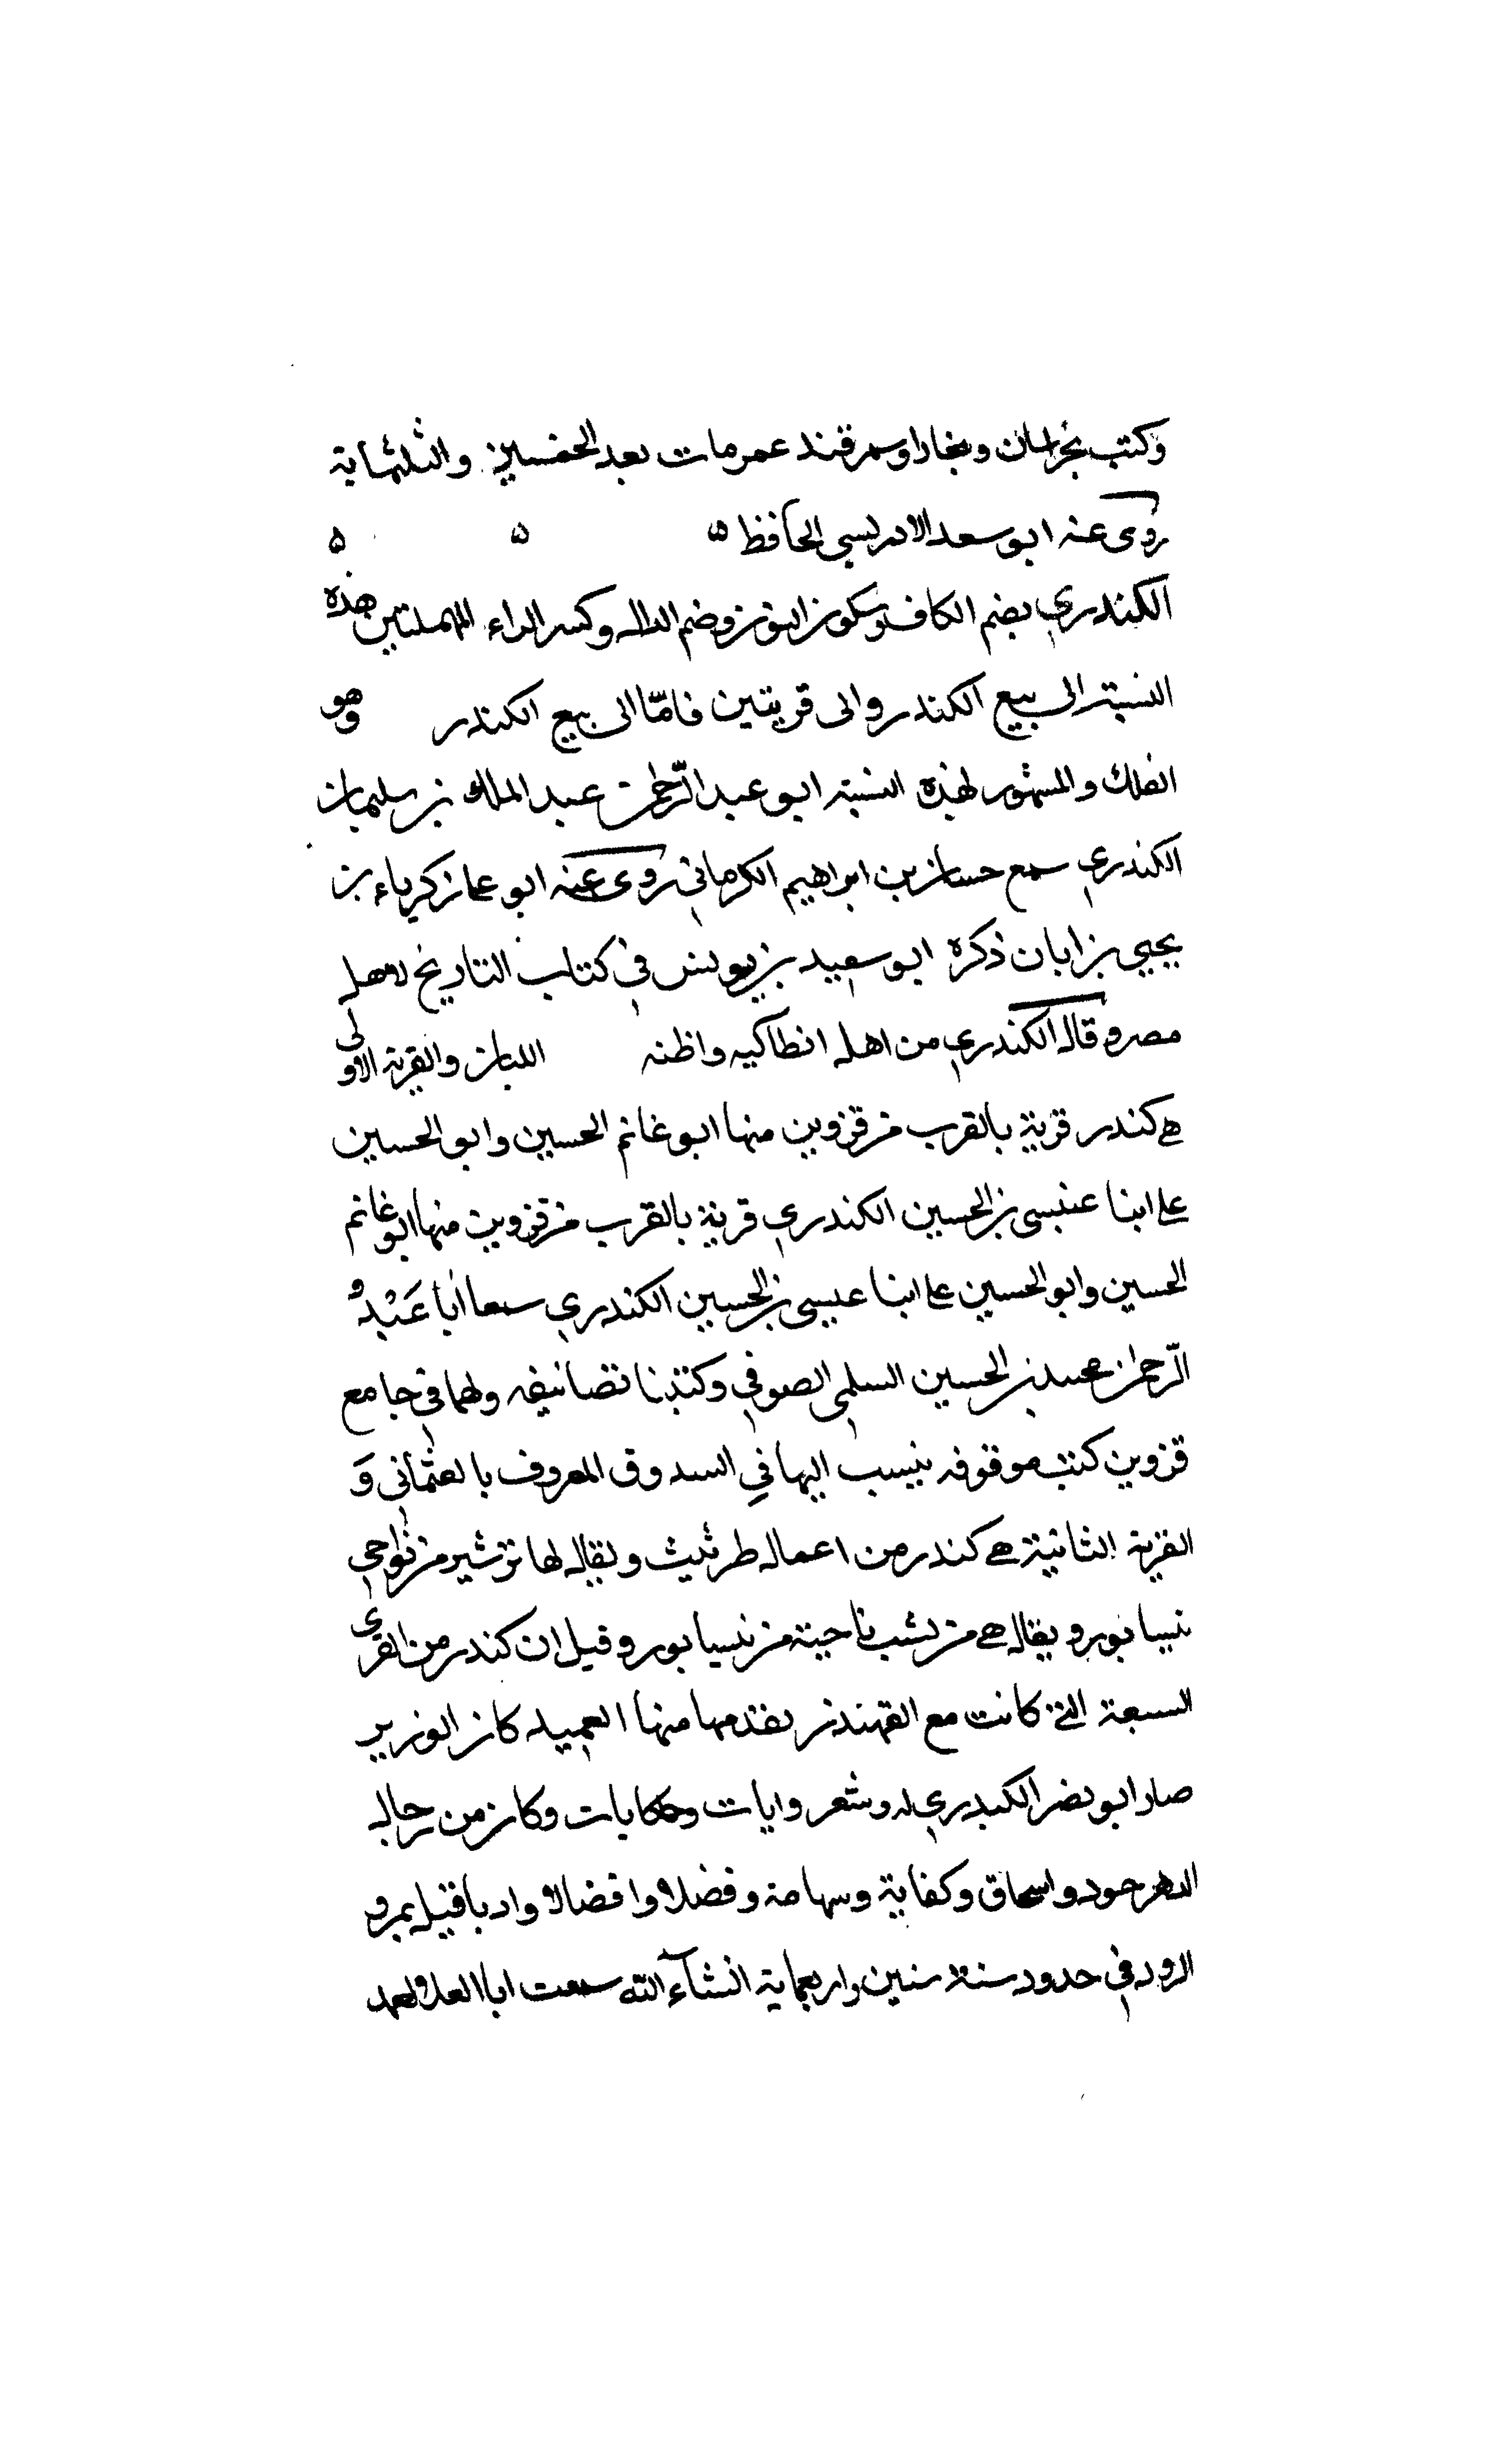 وكتب بخراسان وبخارا وسمرقند عمر مات بعد الخمسين والثلثماية
روى عنه ابو سعد الادريسي الحافظ ه ه ه
الكندري بضم الكاف وسكون النون وضم الدال وكسر الراء المهملتين هذه
النسبة الى بيع الكندر والى قريتين فامّا الى بيع الكندر وهو
العلك والمشهور لهذه النسبة ابو عبد الرّحمن عبد الملك بن سليمان
الكندري سمع حسان بن ابراهيم الكرماني روى عنه ابو عمان زكرياء بن
يحيي بن ابان ذكره ابو سعيد بن يونس في كتاب التاريخ لاهل
مصر وقال الكندري من اهل انطاكيه واظنه اللبان والقرية الاولى
هي كندر قرية بالقرب من قزوين منها ابو غانم الحسين وابو الحسين
علي ابنا عنبسى بن الحسين الكندري قرية بالقرب من قزوين منها ابو غانم
الحسين وابو الحسين علي ابنا عيسى بن الحسين الكندري سمعا ابا عَبْدُ
الرّحمن محمد بن الحسين السلمي الصوفي وكتبنا تصانيفه ولهما في جامع
قزوين كتب موقوفه ينسب اليها في السدوق المعروف بالعثماني وَ
القرية الثانية هي كندر من اعمال طرثيث ويقال لها ترشير من نواحي
نيسابور ويقال هي من بشت ناحية من نيسابور وقيل ان كندر من القرى
السبعة التي كانت مع القهندز بقدمها منها العميد كان الوزير
صار ابو نصر الكندري له وشعر وايات وحكايات وكان من رجال
الدهر جود واسحاق وكفاية وسهامة وفضلا وافضالا وادبا قتيل بمرو
الرود في حدود سنة سنين واربعماية انشآء الله سمعت ابا العلا